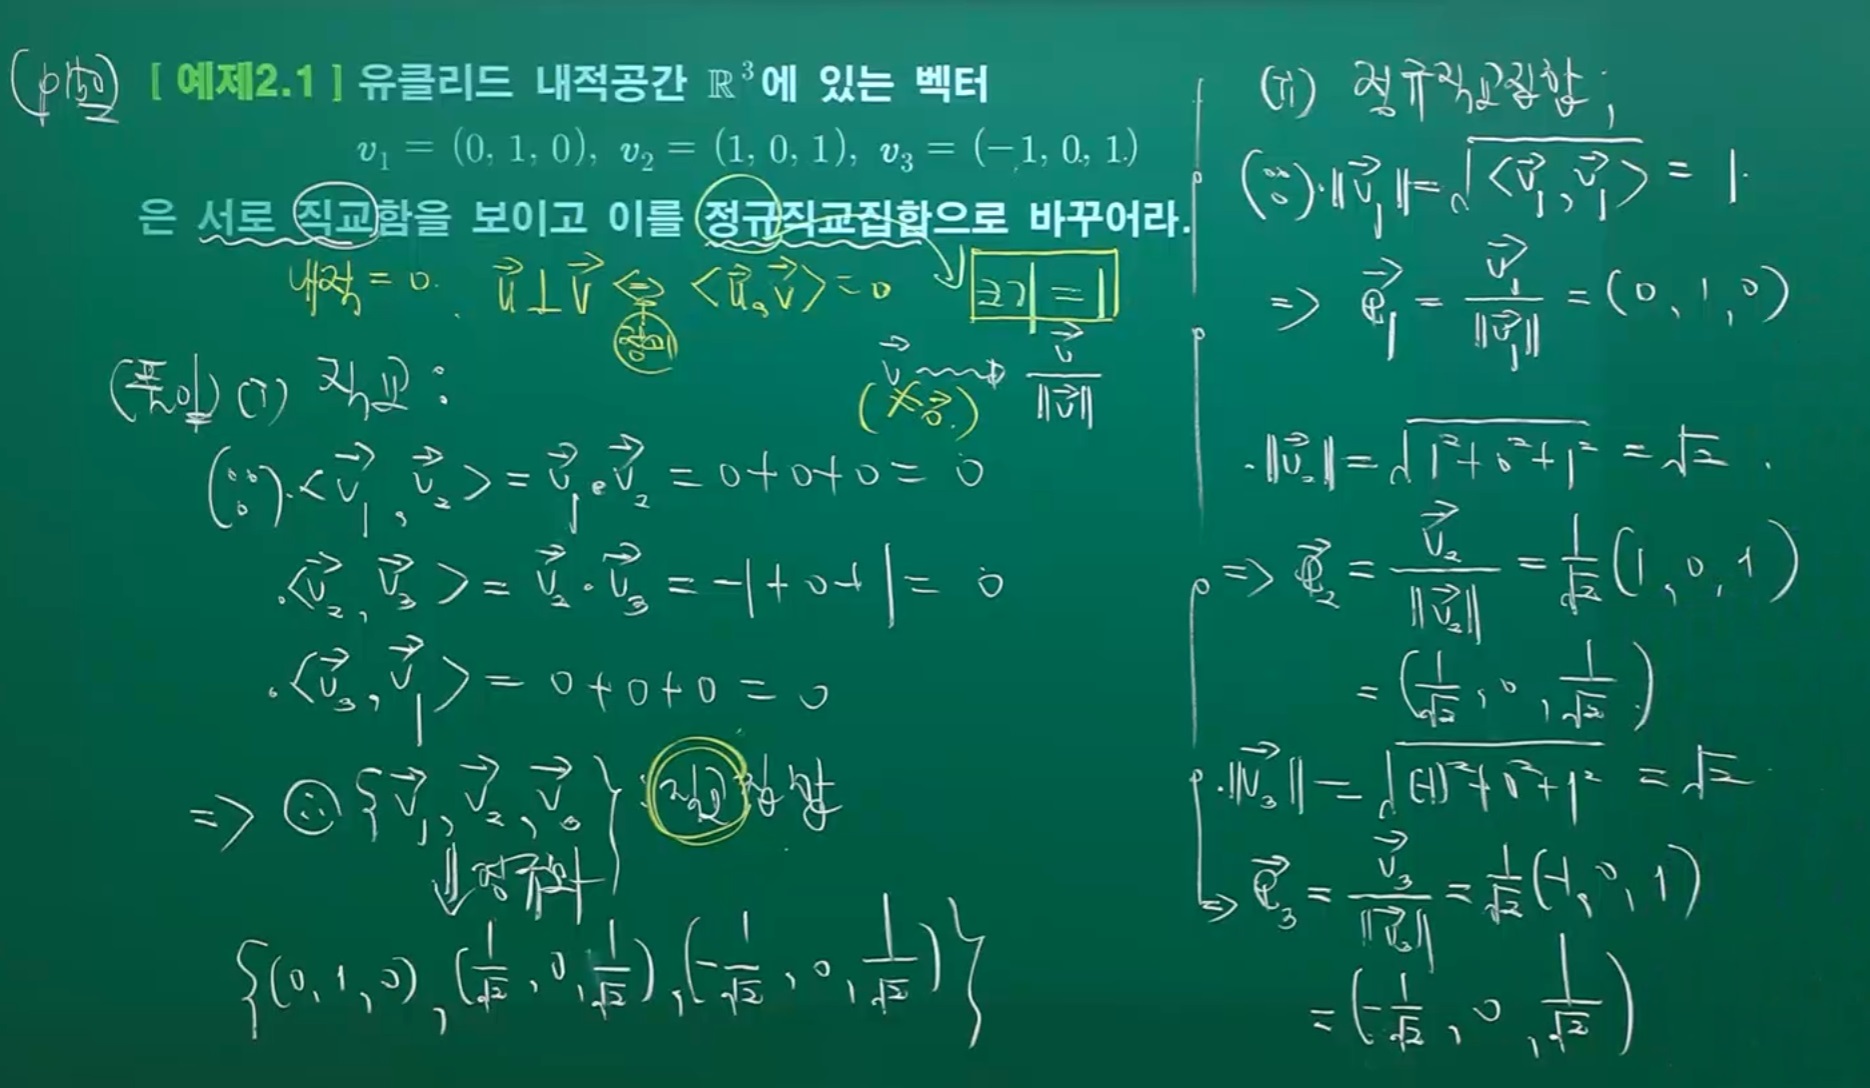 (p150) [ 예제2.1 ] 유클리드 내적공간 ℝ³에 있는 벡터
v₁ = (0, 1, 0), v₂ = (1, 0, 1), v₃ = (−1, 0, 1)
은 서로 직교함을 보이고 이를 정규직교집합으로 바꾸어라.
내적 = 0. u⃗ ⊥ v⃗ ⇔ <u⃗, v⃗> = 0 크기 = 1
정의
v⃗ → v⃗/||v⃗||
(≠ 0⃗.)
(풀이) (i) 직교 :
(∵) · <v⃗₁, v⃗₂> = v⃗₁ · v⃗₂ = 0 + 0 + 0 = 0
· <v⃗₂, v⃗₃> = v⃗₂ · v⃗₃ = −1 + 0 + 1 = 0
· <v⃗₃, v⃗₁> = 0 + 0 + 0 = 0
=> ∴ {v⃗₁, v⃗₂, v⃗₃} : 직교집합
⇓ 정규화
{(0, 1, 0), (1/√2, 0, 1/√2), (−1/√2, 0, 1/√2)}
(ii) 정규직교집합 ;
(∵) · ||v⃗₁|| = √<v⃗₁, v⃗₁> = 1.
=> e⃗₁ = v⃗₁/||v⃗₁|| = (0, 1, 0)
· ||v⃗₂|| = √(1² + 0² + 1²) = √2 .
=> e⃗₂ = v⃗₂/||v⃗₂|| = 1/√2 (1, 0, 1)
= (1/√2, 0, 1/√2)
· ||v⃗₃|| = √((−1)² + 0² + 1²) = √2
=> e⃗₃ = v⃗₃/||v⃗₃|| = 1/√2 (−1, 0, 1)
= (−1/√2, 0, 1/√2)